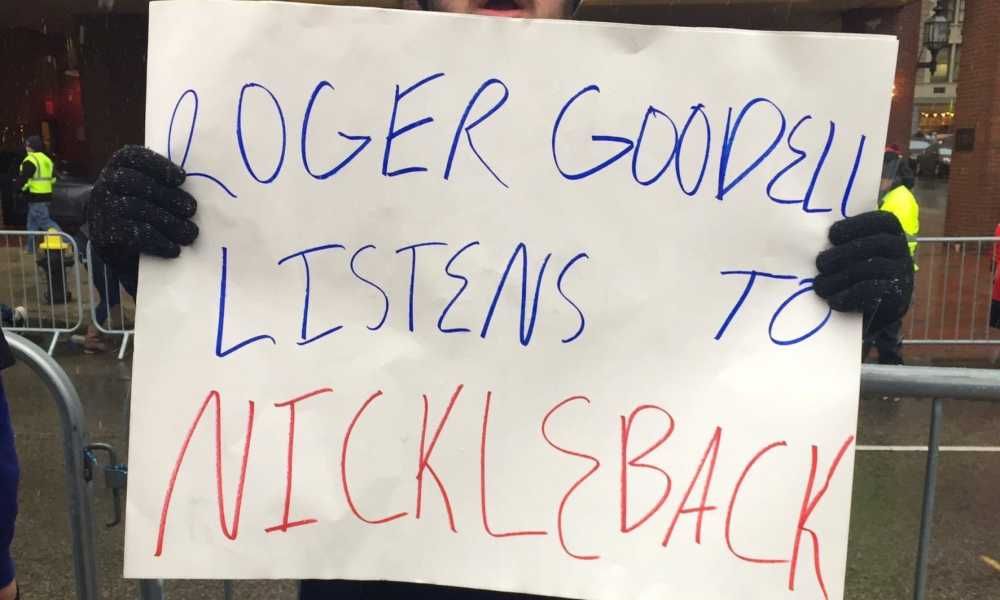 ROGER GOODELL
LISTENS TO
NICKLEBACK